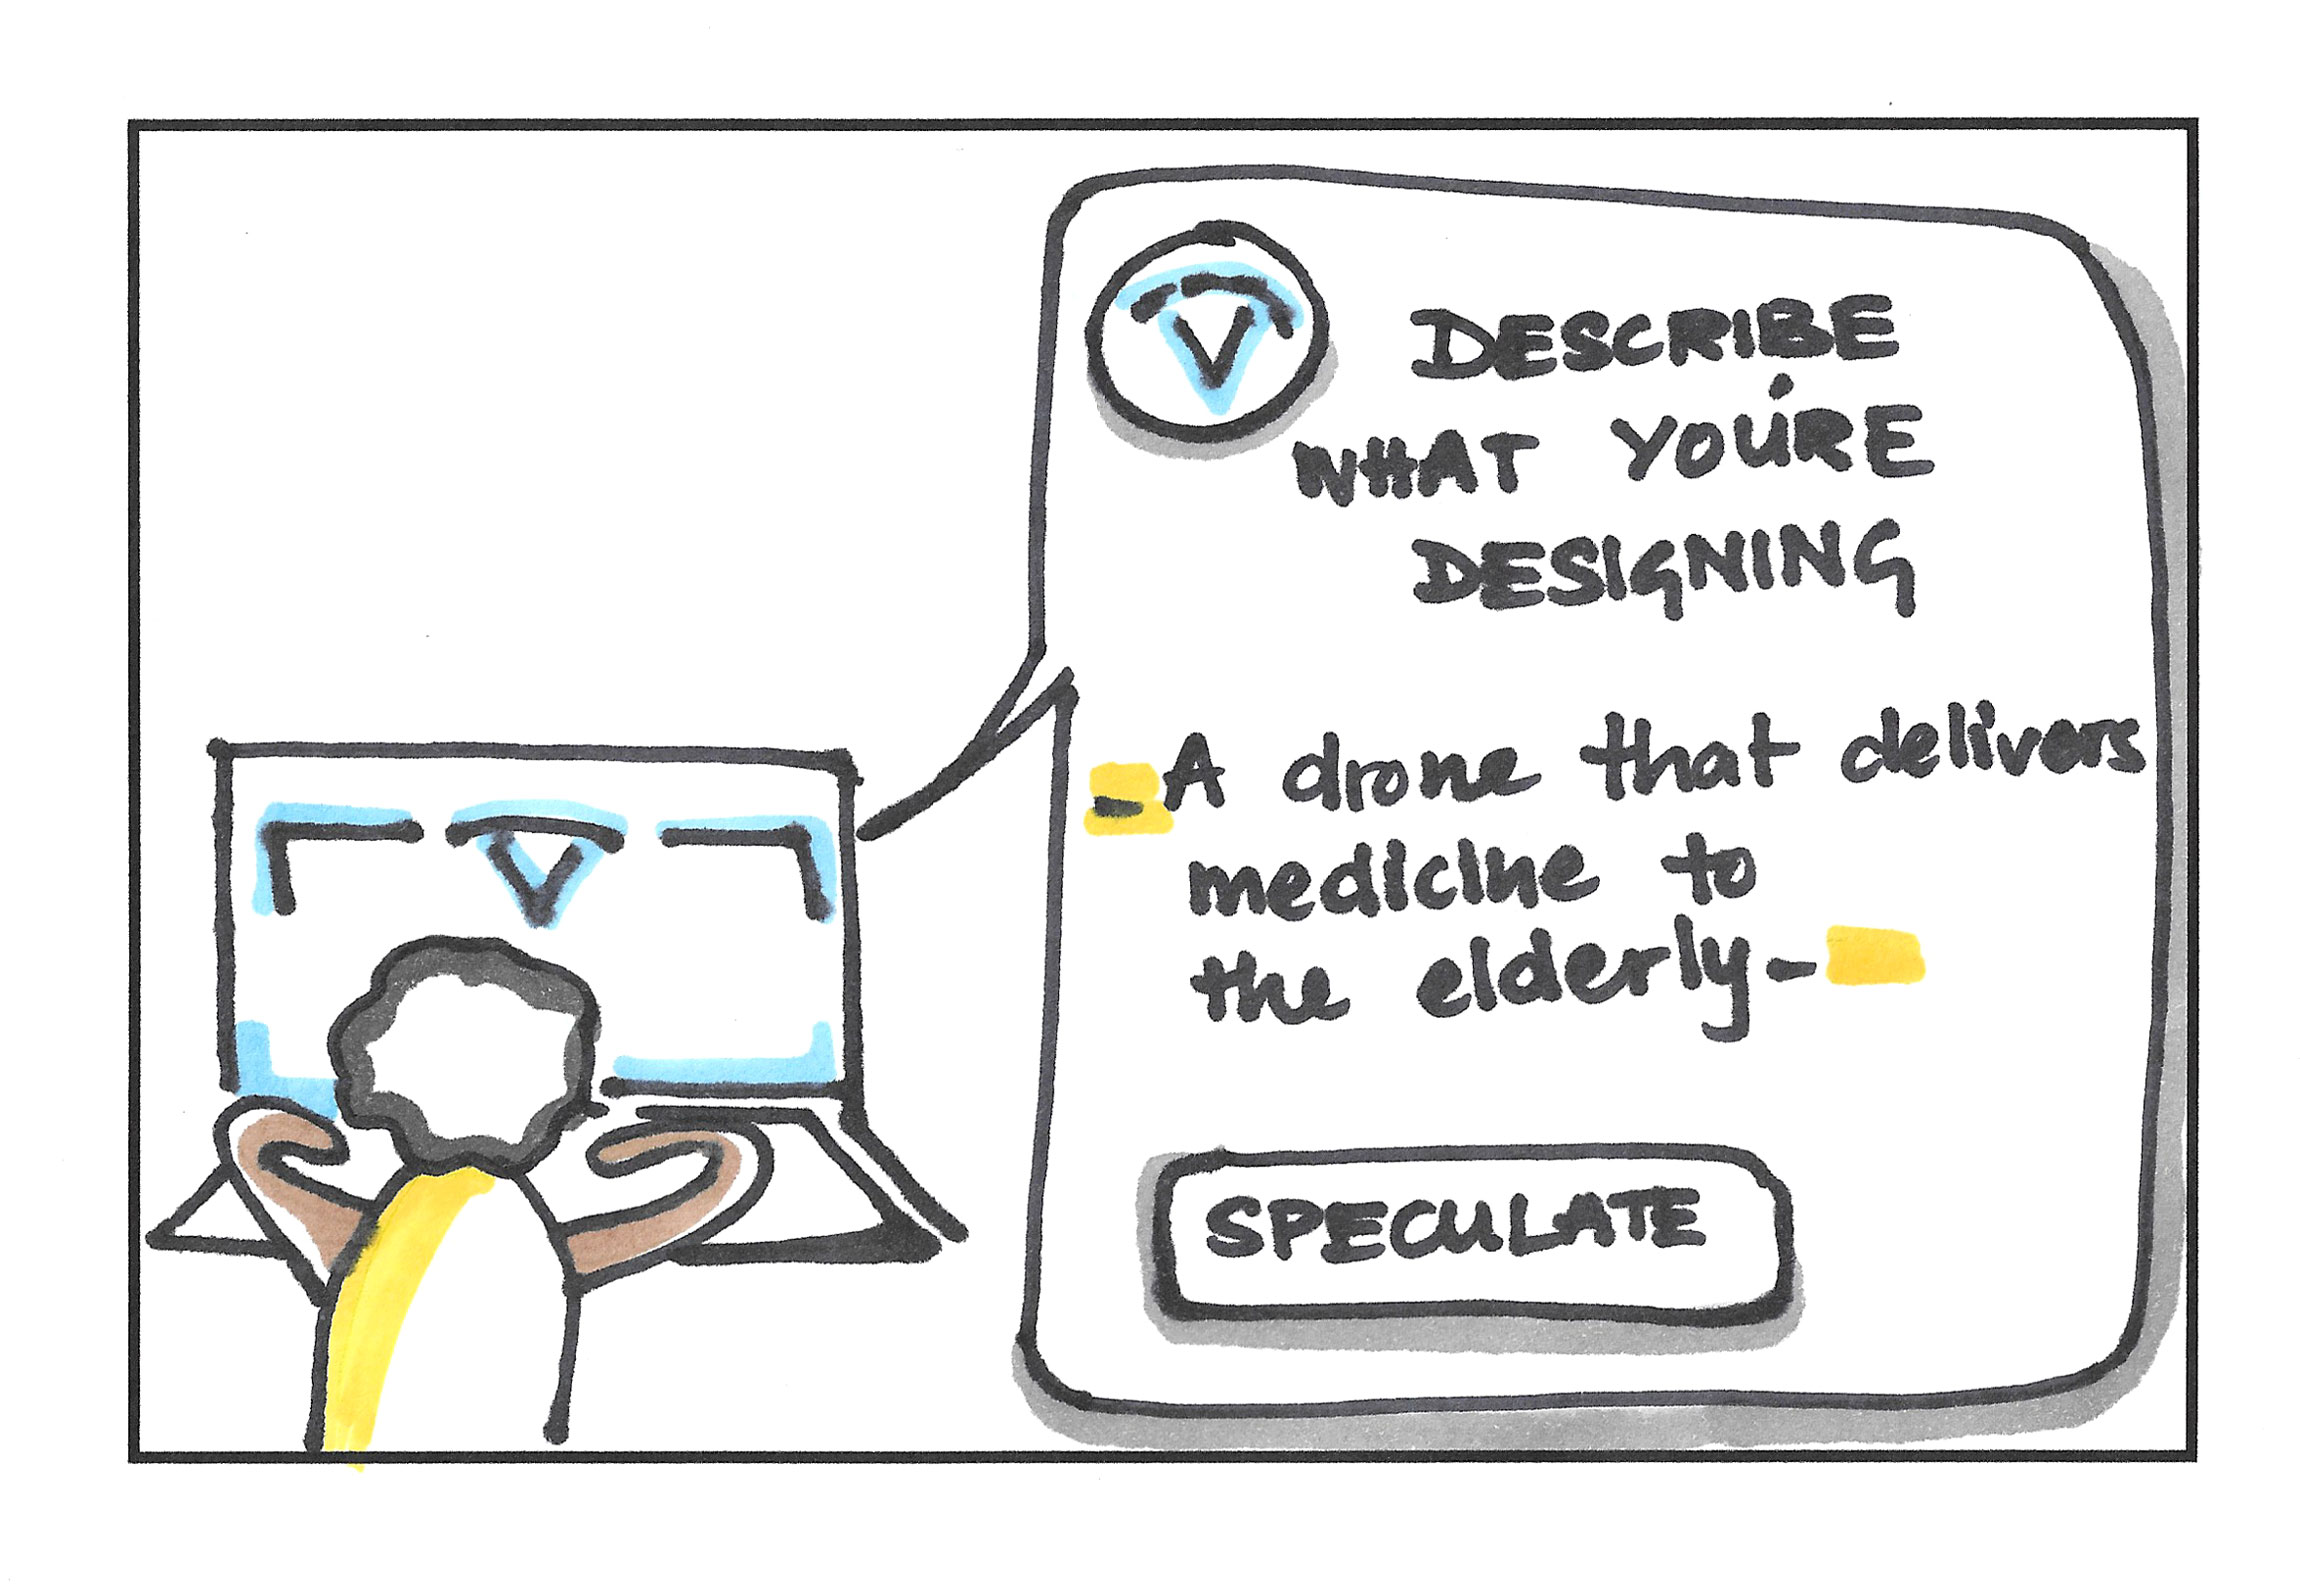 DESCRIBE
WHAT YOU'RE
DESIGNING
- A drone that delivers
medicine to
the elderly -
SPECULATE